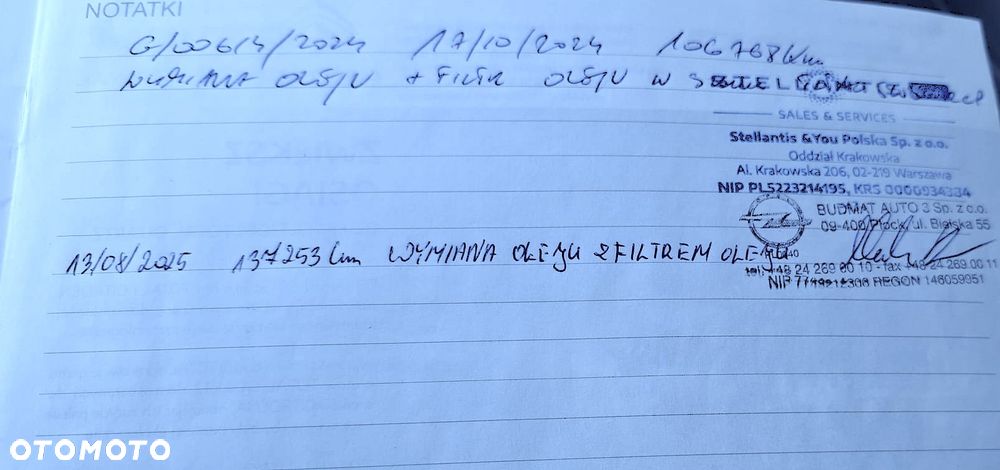 NOTATKI
G/00614/2024 17/10/2024 106768 km
WYMIANA OLEJU + FILTR OLEJU W
SALES & SERVICES
Stellantis &You Polska Sp. z o.o.
Oddział Krakowska
Al. Krakowska 206, 02-219 Warszawa
NIP PL5223214195, KRS 0000934334
BUDMAT AUTO 3 Sp. z o.o.
09-400 Płock, ul. Bielska 55
13/08/2025 137253 km WYMIANA OLEJU Z FILTREM OLEJU
tel. +48 24 269 00 10 - fax +48 24 269 00 11
NIP REGON 146059951
OTOMOTO